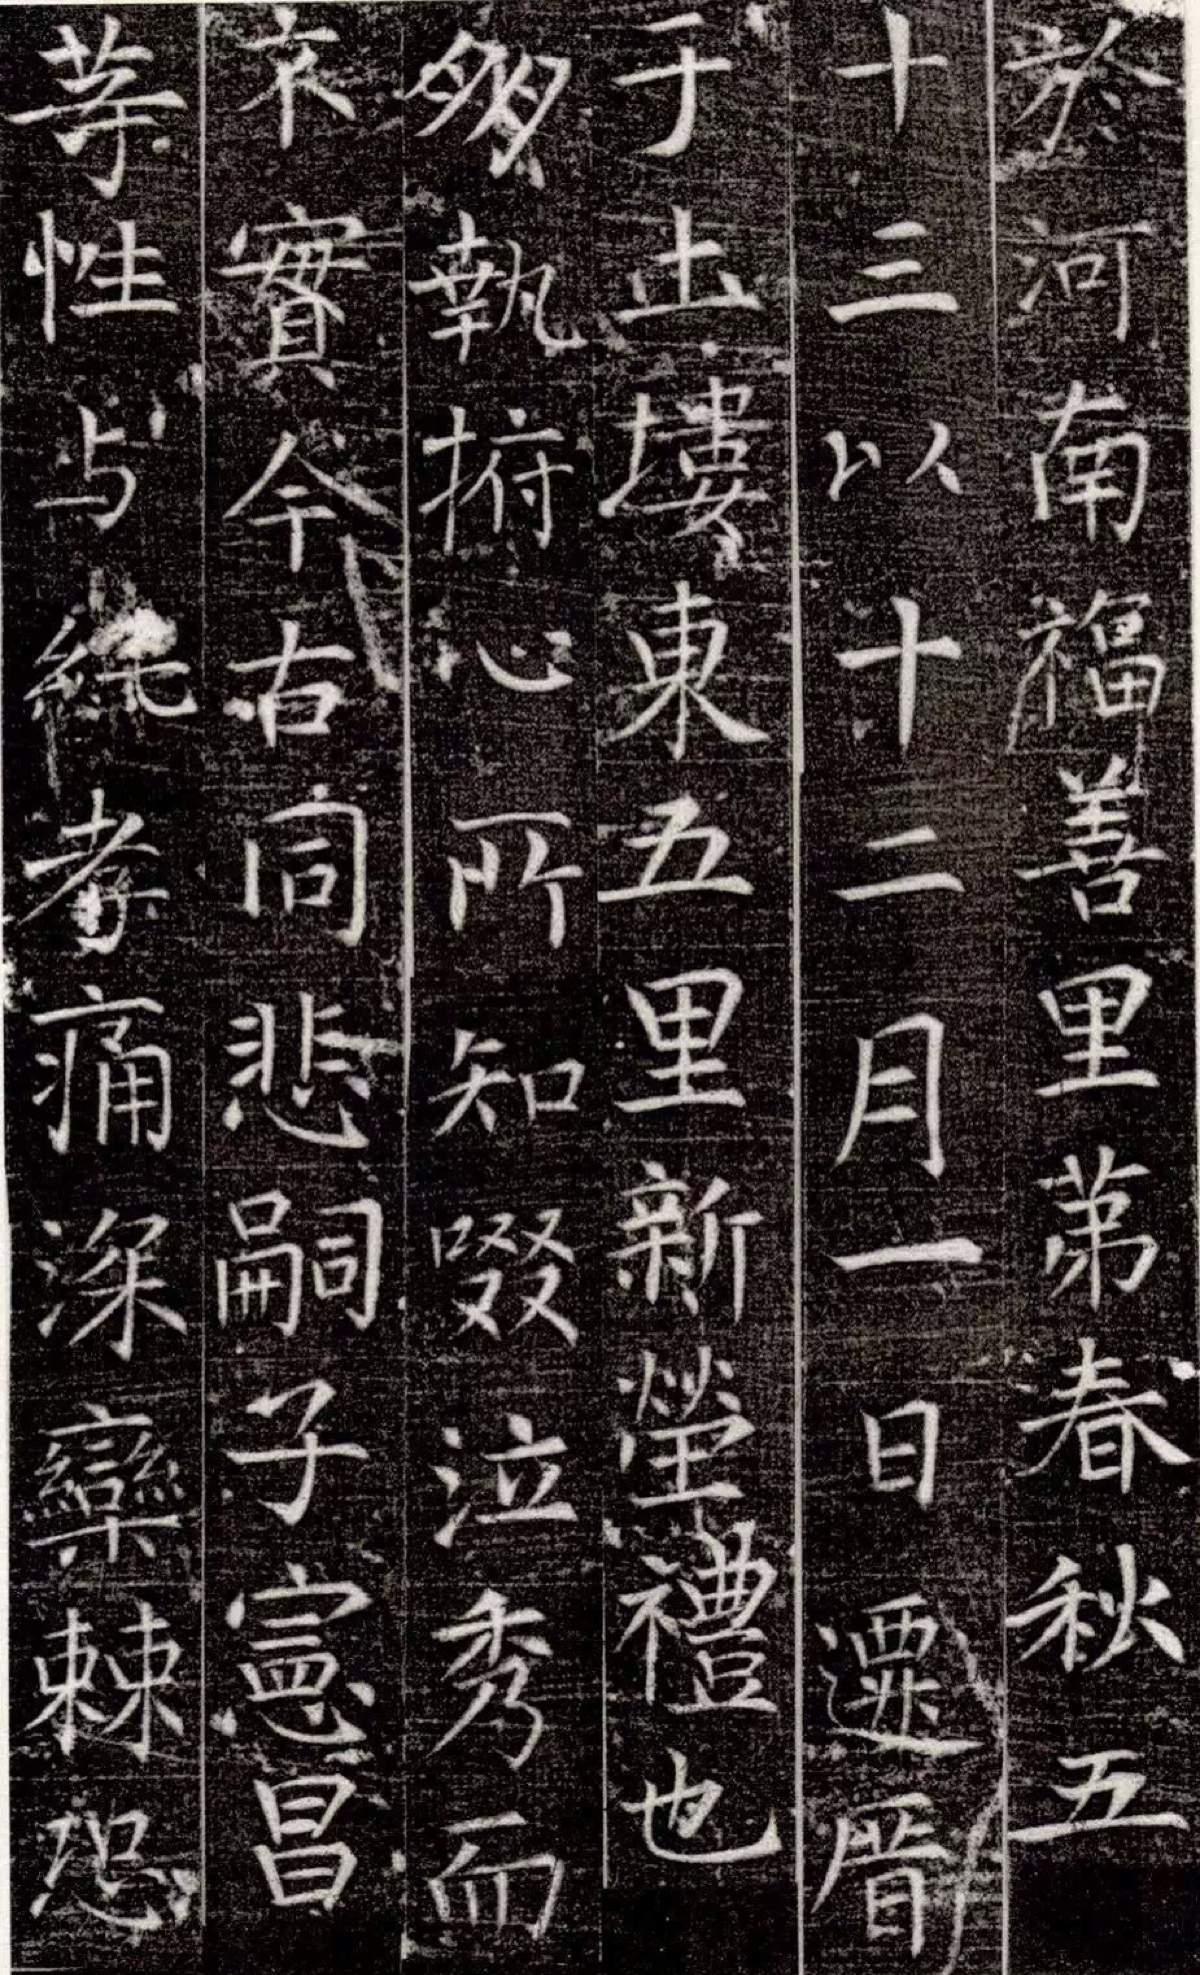 於河南福善里第春秋五
十三以十二月一日遷厝
于土塿東五里新塋禮也
多執拊心所知啜泣秀而
不實今古同悲嗣子憲昌
等性与純孝痛深欒棘恐